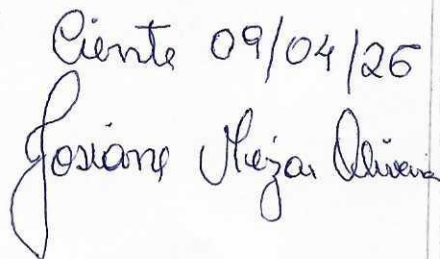 Ciente 09/04/26
Josiane Oliveira